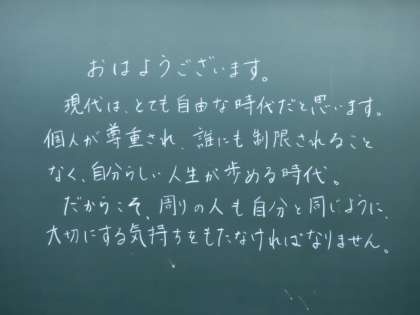 おはようございます。
現代は、とても自由な時代だと思います。
個人が尊重され、誰にも制限されること
なく、自分らしい人生が歩める時代。
だからこそ、周りの人も自分と同じように、
大切にする気持ちをもたなければなりません。